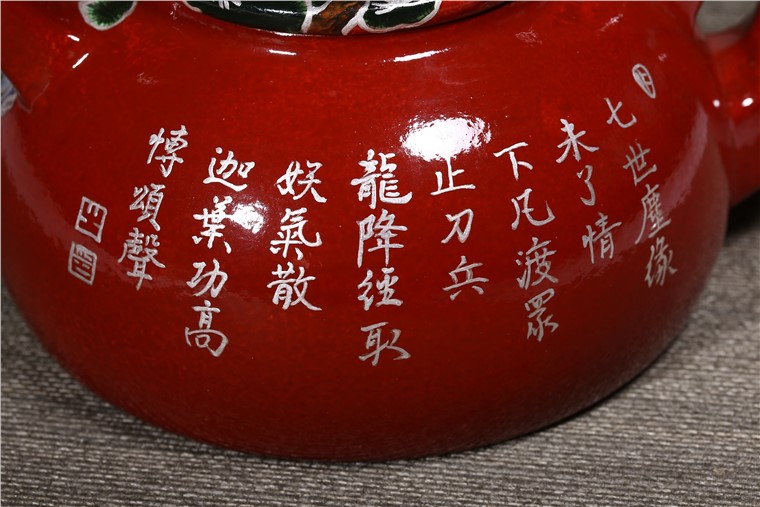 七世塵緣
未了情
下凡渡眾
止刀兵
龍降經取
妖氣散
迦葉功高
博頌聲